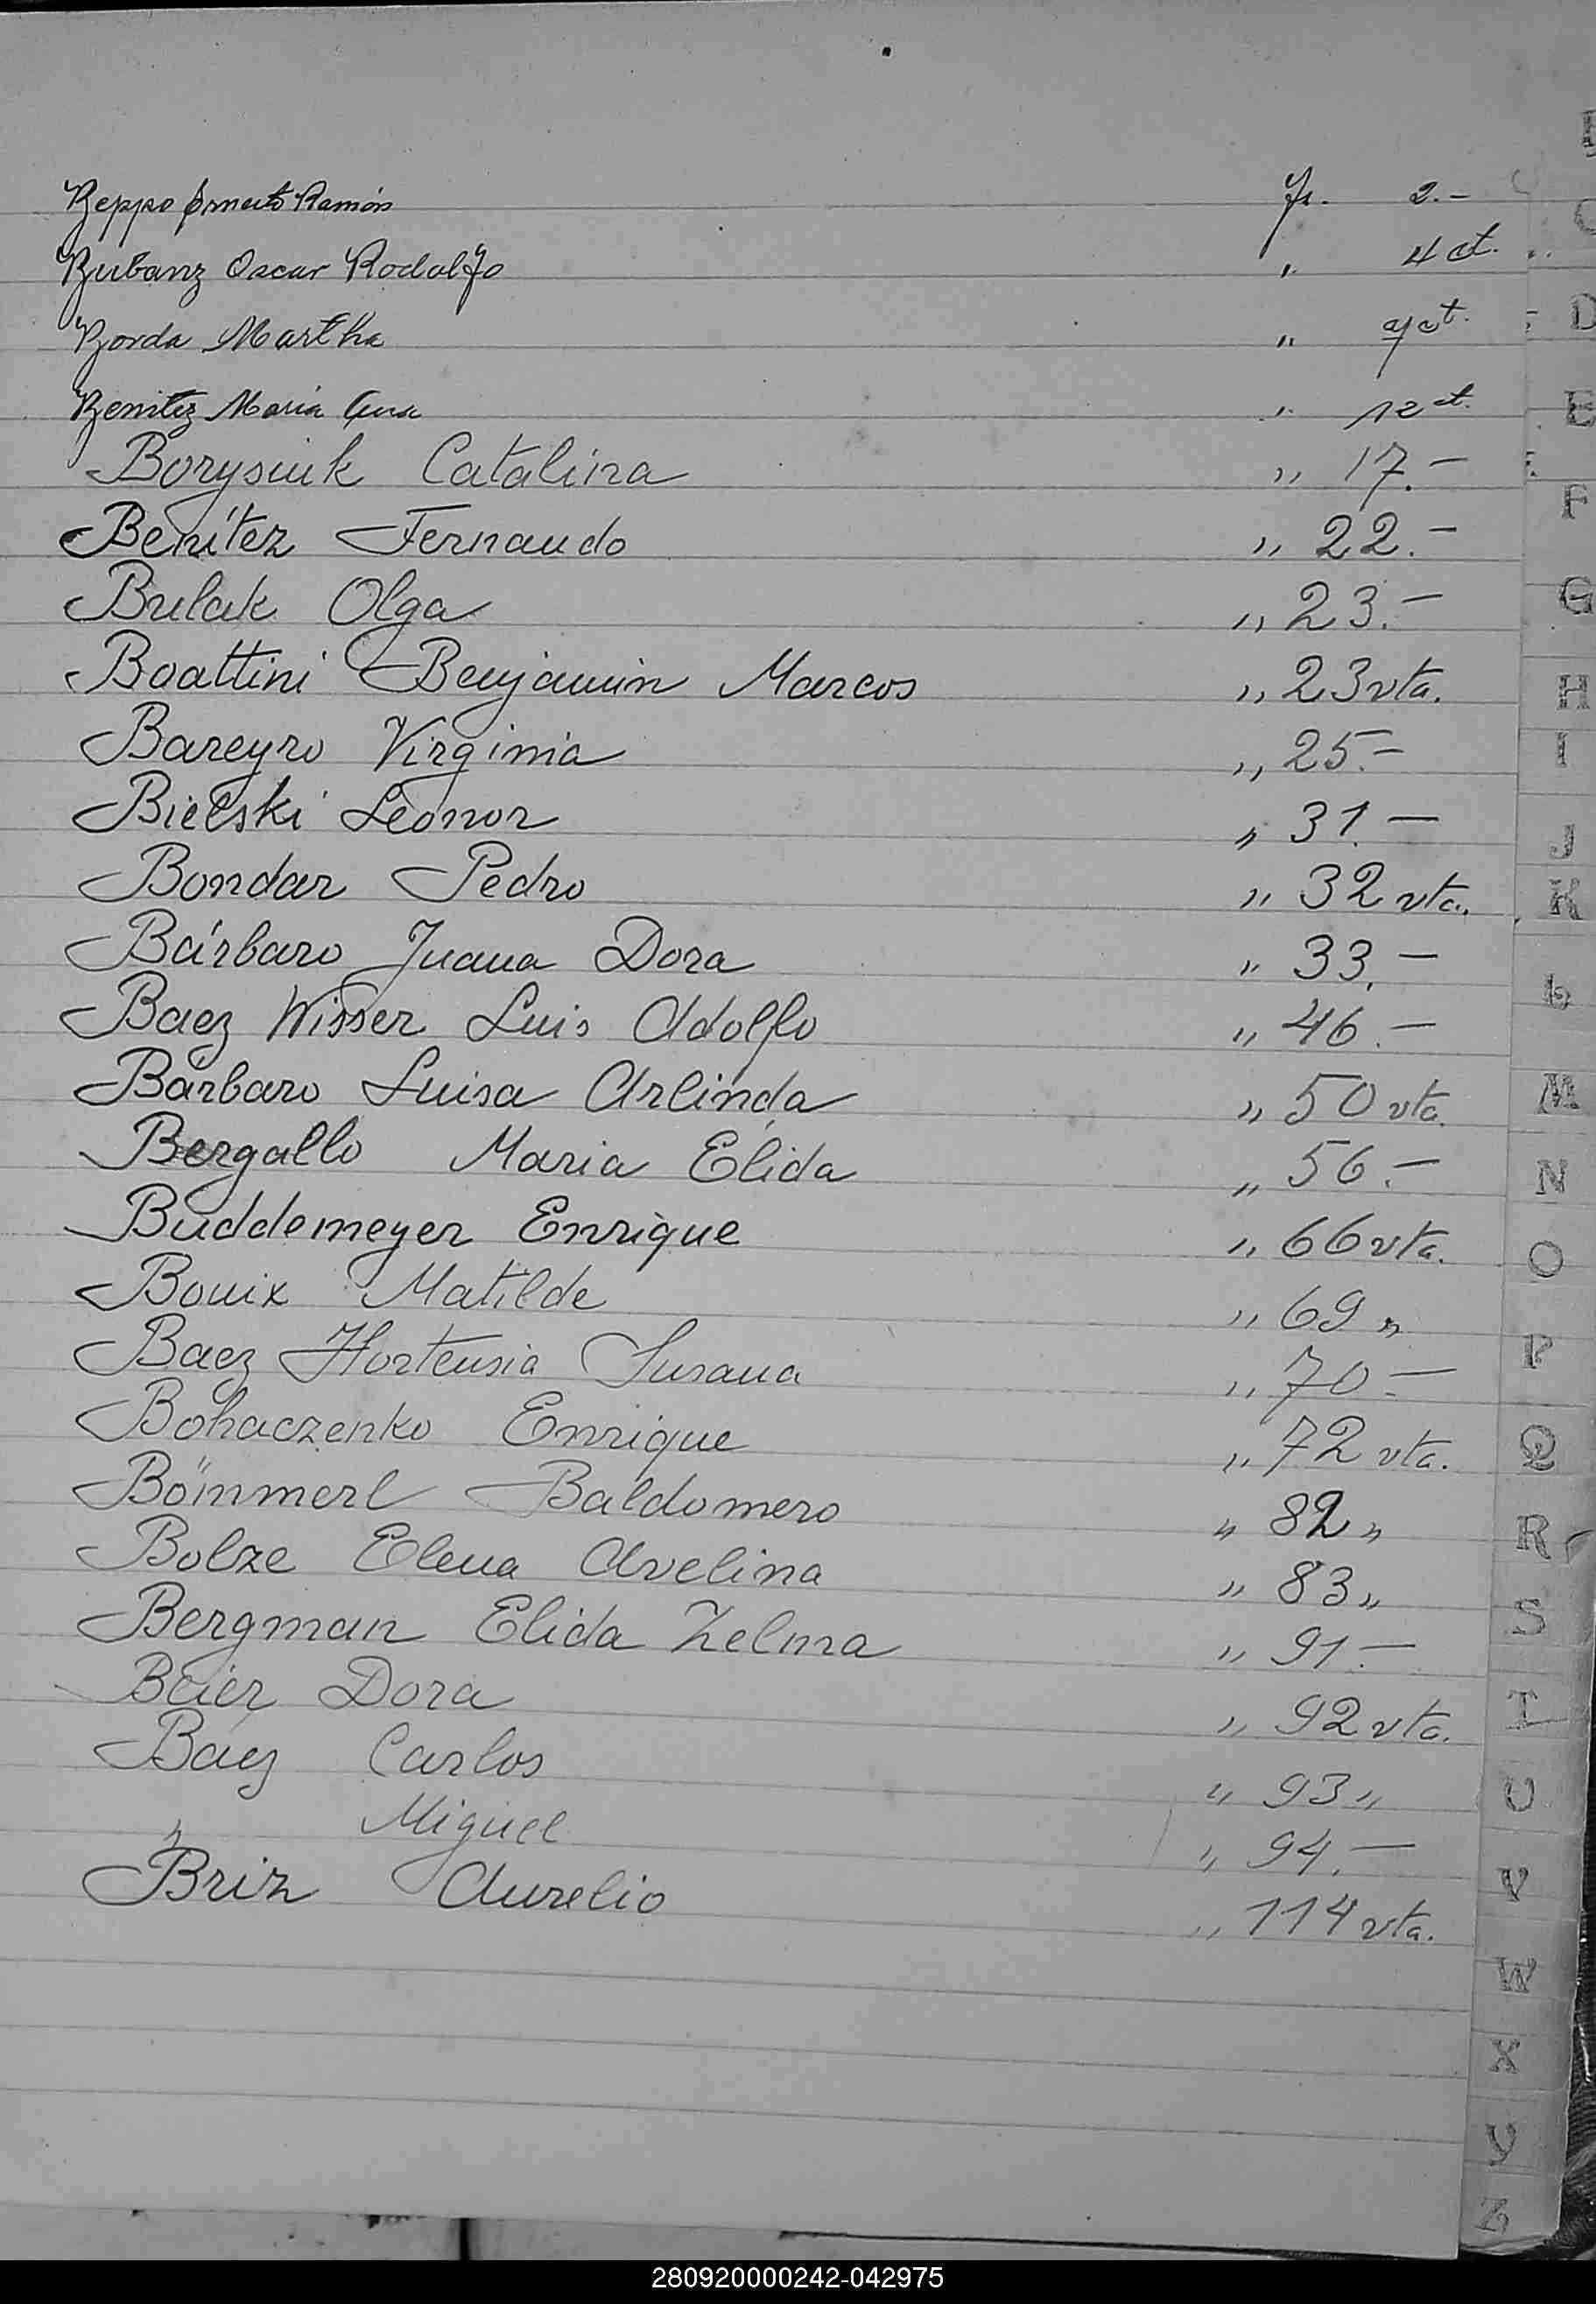 Beppo Ernesto Ramón Fs. 2.-
Bubanz Oscar Rodolfo " 4 vt.
Borda Martha " 9 vt.
Benitez Maria Ana " 12 vt.
Borysiuk Catalina " 17.-
Benítez Fernando " 22.-
Bulak Olga " 23.-
Boattini Benjamin Marcos " 23 vta.
Bareyro Virginia " 25.-
Bielski Leonor " 31.-
Bondar Pedro " 32 vta.
Bárbaro Juana Dora " 33.-
Baez Wisser Luis Adolfo " 46.-
Bárbaro Luisa Arlinda " 50 vta.
Bergallo Maria Elida " 56.-
Buddemeyer Enrique " 66 vta.
Bouix Matilde " 69 "
Baez Hortensia Susana " 70.-
Bohaczenko Enrique " 72 vta.
Baldomero " 82 "
Bolze Elena Avelina " 83 "
Bergman Elida Zelma " 91.-
Beier Dora " 92 vta.
Báez Carlos " 93 "
" Miguel " 94.-
Briz Aurelio " 114 vta.
C
D
E
F
G
H
I
J
K
L
M
N
O
P
Q
R
S
T
U
V
W
X
Y
Z
280920000242-042975